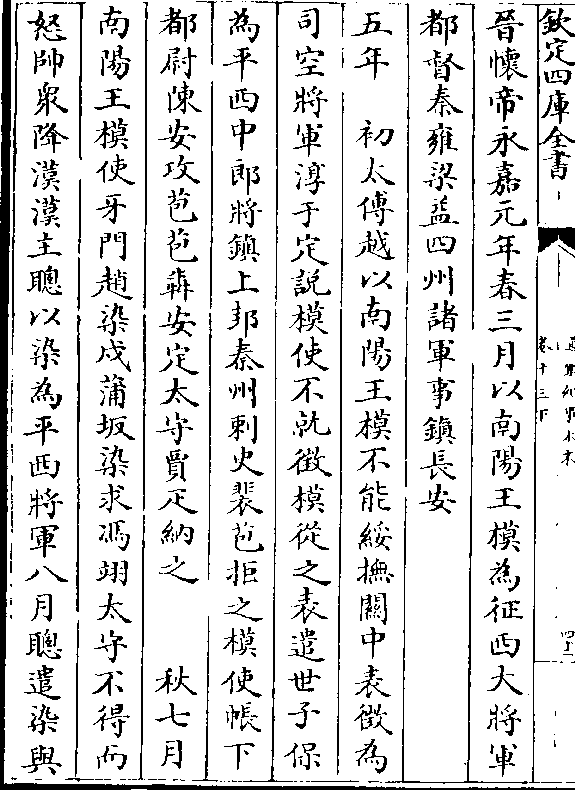 欽定四庫全書
卷十三下
晉懷帝永嘉元年春三月以南陽王模為征西大將軍
都督秦雍梁益四州諸軍事鎮長安
五年　初太傅越以南陽王模不能綏撫關中表徵為
司空將軍淳于定説模使不就徵模從之表遣世子保
為平西中郎將鎮上邽秦州刺史裴苞拒之模使帳下
都尉陳安攻苞苞奔安定太守賈疋納之　　秋七月
南陽王模使牙門趙染戍蒲坂染求馮翊太守不得而
怒帥衆降漢漢主聰以染為平西將軍八月聰遣染與